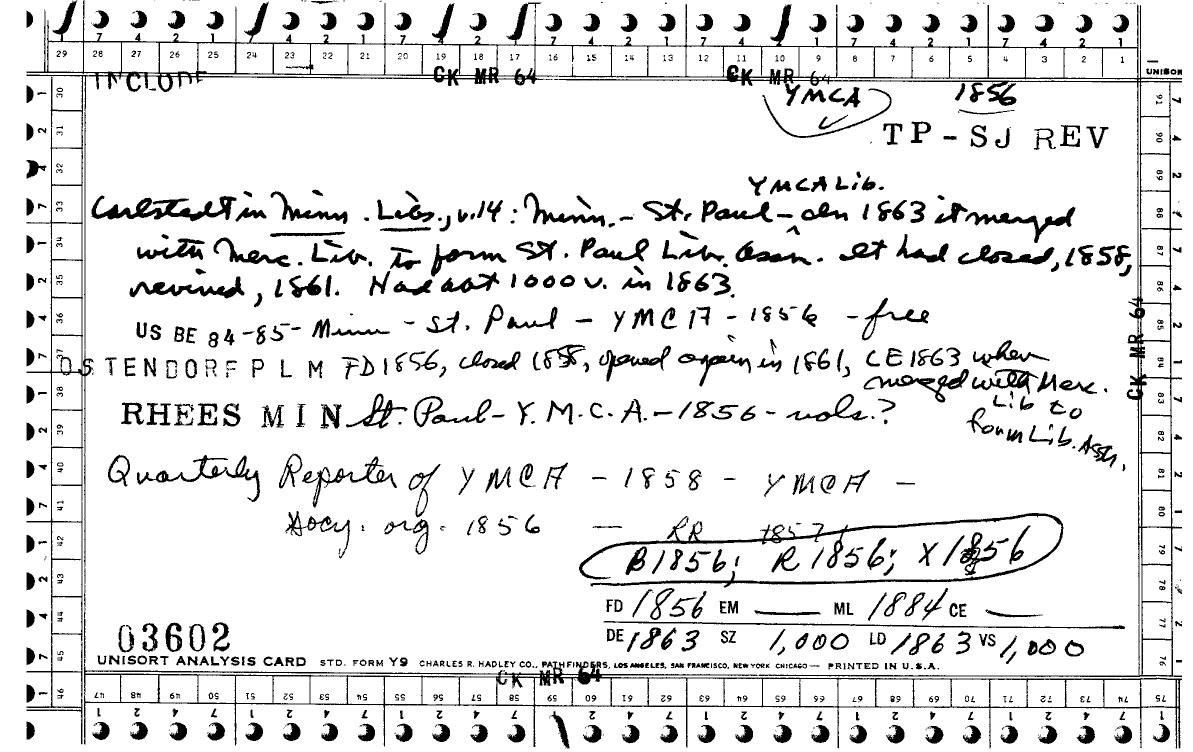 7 4 2 1 7 4 2 1 7 4 2 1 7 4 2 1 7 4 2 1 7 4 2 1 7 4 2 1
29 28 27 26 25 24 23 22 21 20 19 18 17 16 15 14 13 12 11 10 9 8 7 6 5 4 3 2 1
INCLUDE CK MR 64 CK MR 64 UNISOR
YMCA 1856
TP-SJ REV
YMCA Lib.
Carlstedt in Minn. Libs., v.14: Minn. - St. Paul - ^ In 1863 it merged
with Merc. Lib. to form St. Paul Lib. Assn. It had closed, 1858,
revived, 1861. Had abt 1000 v. in 1863.
US BE 84-85- Minn - St. Paul - YMCA - 1856 - free
OSTENDORF P L M FD 1856, closed 1858, opened again in 1861, CE 1863 when
merged with Merc.
Lib to
form Lib. Assn.
RHEES MIN St. Paul - Y.M.C.A. - 1856 - vols.?
Quarterly Reporter of YMCA - 1858 - YMCA -
Socy. org. 1856 — RR 1857
B1856; R 1856; X1856
FD 1856 EM — ML 1884 CE —
DE 1863 SZ 1,000 LD 1863 VS 1,000
03602
UNISORT ANALYSIS CARD STD. FORM Y9 CHARLES R. HADLEY CO., PATHFINDERS, LOS ANGELES, SAN FRANCISCO, NEW YORK CHICAGO — PRINTED IN U.S.A.
CK MR 64
CK MR 64
30 31 32 33 34 35 36 37 38 39 40 41 42 43 44 45 46
91 90 89 88 87 86 85 84 83 82 81 80 79 78 77 76 75
47 48 49 50 51 52 53 54 55 56 57 58 59 60 61 62 63 64 65 66 67 68 69 70 71 72 73 74